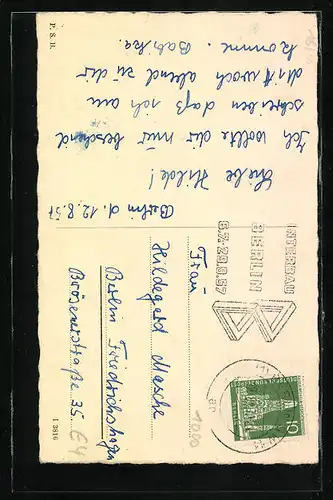 Berlin d. 12.8.57
Liebe Hilde!
Ich wollte dir nur bescheid
schreiben daß ich am
Mittwoch abend zu dir
komme. Babika.
P. S. B.
INTERBAU
BERLIN
6.7.-29.9.57
10
Frau
Hildegard Masche
Berlin Friedrichshagen
Bröseartstraße 35
1080
I 3816